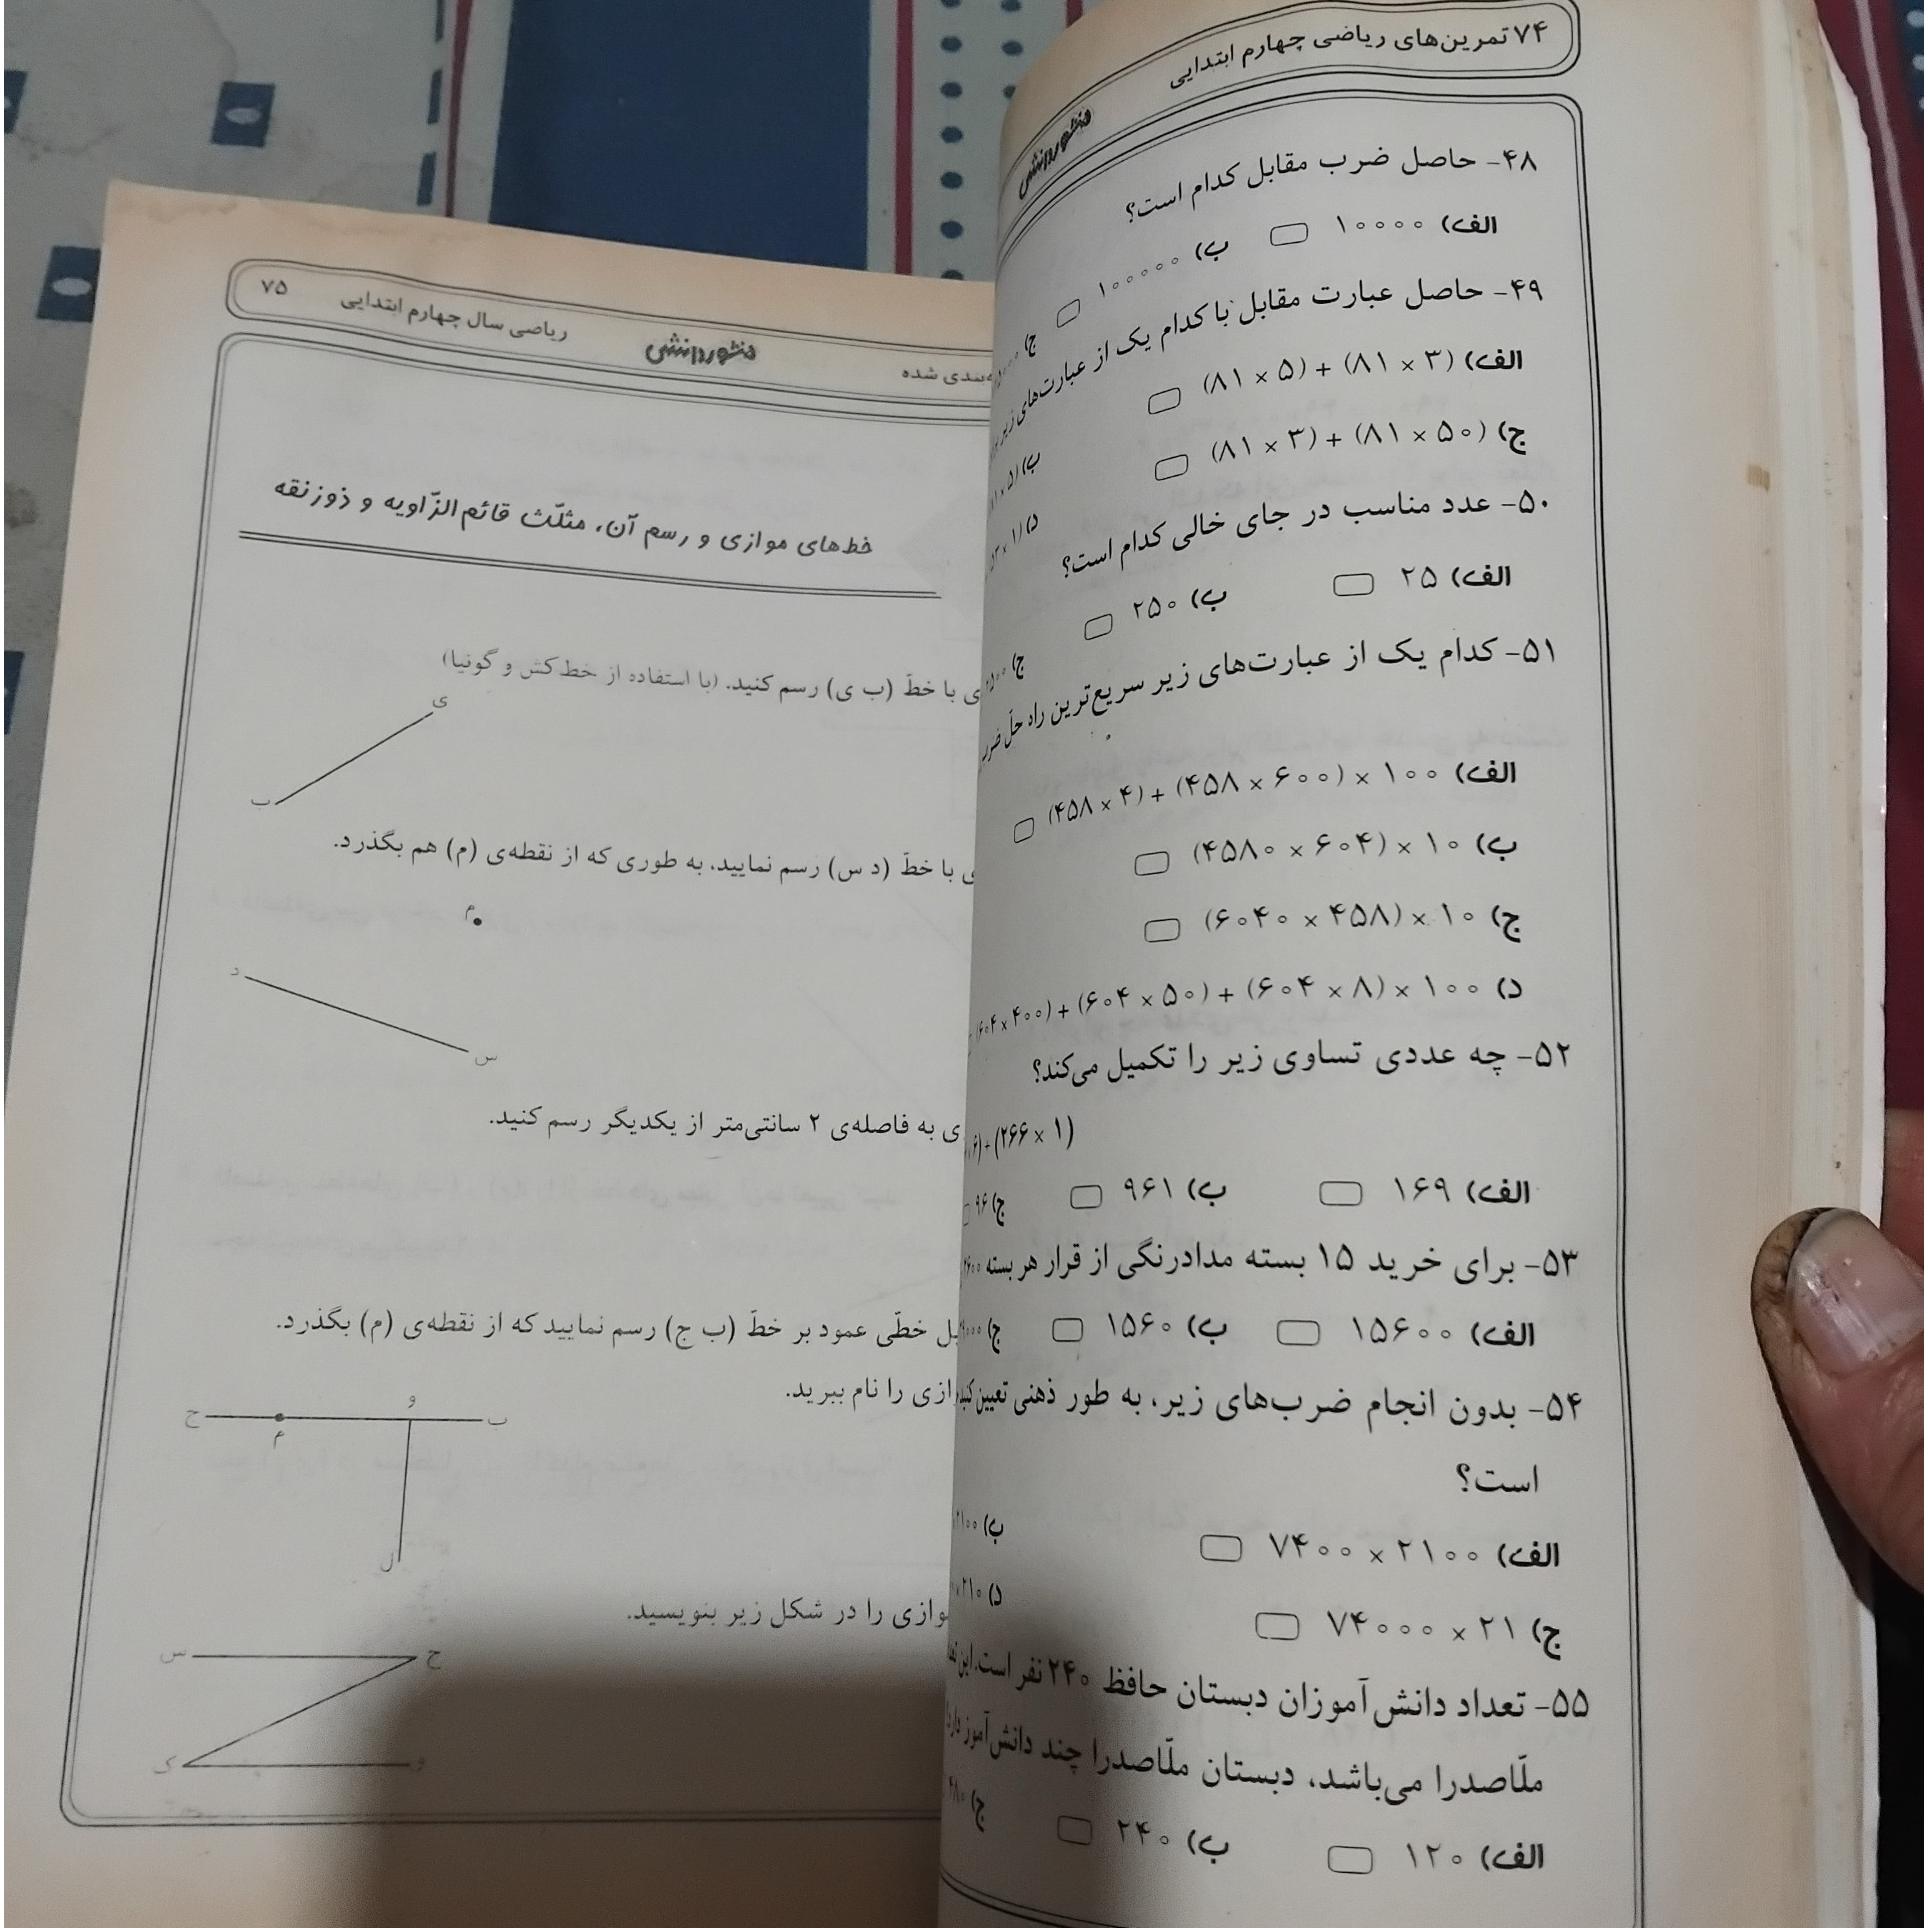 ۷۴ تمرین‌های ریاضی چهارم ابتدایی
منشور دانش
۴۸- حاصل ضرب مقابل کدام است؟
الف) ۱۰۰۰۰ ب) ۱۰۰۰۰۰ ج)
۴۹- حاصل عبارت مقابل با کدام یک از عبارت‌های زیر
الف) (۸۱ × ۵) + (۸۱ × ۳) ب)
ج) (۸۱ × ۳) + (۸۱ × ۵۰) د)
۵۰- عدد مناسب در جای خالی کدام است؟
الف) ۲۵ ب) ۲۵۰ ج)
۵۱- کدام یک از عبارت‌های زیر سریع‌ترین راه حلّ ضرب
الف) (۴۵۸ × ۴) + (۴۵۸ × ۶۰۰) × ۱۰۰
ب) (۴۵۸۰ × ۶۰۴) × ۱۰
ج) (۶۰۴۰ × ۴۵۸) × ۱۰
د) (۶۰۴ × ۴۰۰) + (۶۰۴ × ۵۰) + (۶۰۴ × ۸) × ۱۰۰
۵۲- چه عددی تساوی زیر را تکمیل می‌کند؟
(۲۶۶ × ۱)
الف) ۱۶۹ ب) ۹۶۱ ج) ۹۶
۵۳- برای خرید ۱۵ بسته مدادرنگی از قرار هر بسته
الف) ۱۵۶۰۰ ب) ۱۵۶۰ ج)
۵۴- بدون انجام ضرب‌های زیر، به طور ذهنی تعیین کنید
است؟
الف) ۷۴۰۰ × ۲۱۰۰ ب)
ج) ۷۴۰۰۰ × ۲۱ د)
۵۵- تعداد دانش‌آموزان دبستان حافظ ۲۴۰ نفر است. این
ملّاصدرا می‌باشد، دبستان ملّاصدرا چند دانش‌آموز دارد
الف) ۱۲۰ ب) ۲۴۰ ج) ۴۸۰
ریاضی سال چهارم ابتدایی ۷۵
منشور دانش
بندی شده
خط‌های موازی و رسم آن، مثلّث قائم‌الزّاویه و ذوزنقه
ی با خطّ (ب ی) رسم کنید. (با استفاده از خط‌کش و گونیا)
ی
ب
ی با خطّ (د س) رسم نمایید، به طوری که از نقطه‌ی (م) هم بگذرد.
م
د
س
ی به فاصله‌ی ۲ سانتی‌متر از یکدیگر رسم کنید.
خطّی عمود بر خطّ (ب ج) رسم نمایید که از نقطه‌ی (م) بگذرد.
ازی را نام ببرید.
ب و م ج
ل
وازی را در شکل زیر بنویسید.
ح س
و ک